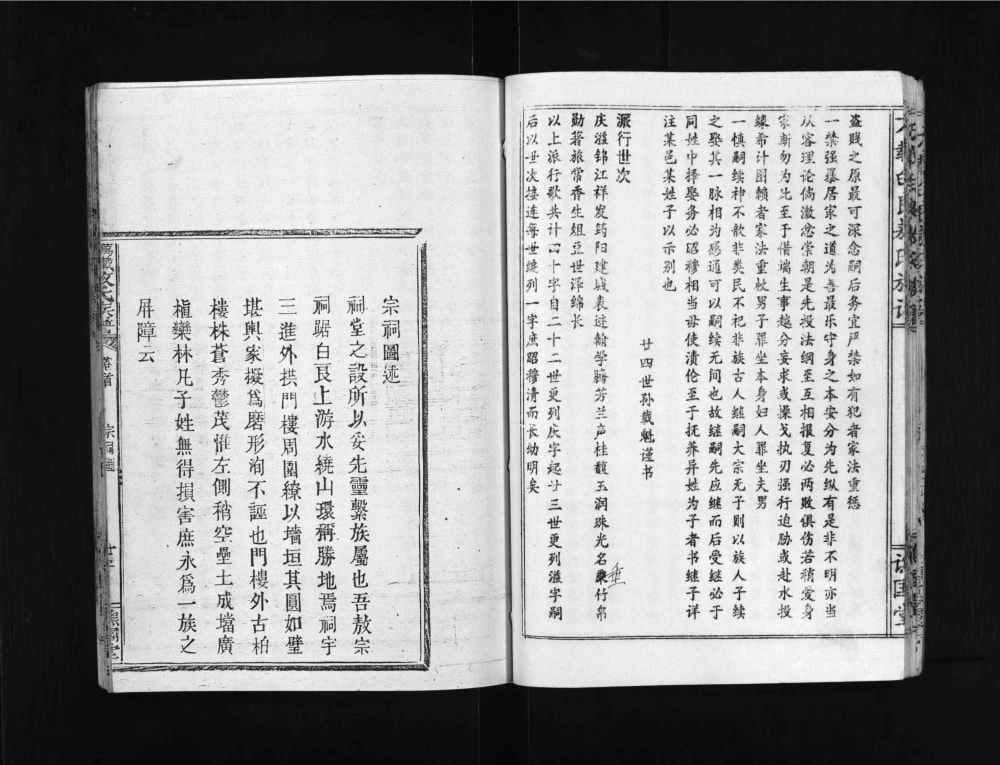 盗贱之原最可深念嗣后务宜严禁如有犯者家法重惩
一禁强暴居家之道为善最乐守身之本安分为先纵有是非不明亦当
从容理论倘激忿荣朝是先投法纲至互相报复必两败俱伤若稍爱身
家断勿为比至于借端生事越分妄求或操戈执刃强行迫胁或赴水投
缘希计图赖者家法重杖男子罪坐本身妇人罪坐夫男
一慎嗣续神不歆非类民不祀非族古人继嗣大宗无子则以族人子续
之娶其一脉相为感通可以嗣续无间也故继嗣先应继而后受继必于
同姓中择娶务必昭穆相当毋使渎伦至于抚养异姓为子者书继子详
注某邑某姓子以示别也
廿四世孙载魁谨书
派行世次
庆溢锦江祥发筠阳建城表述翰学腾芳兰声桂馥玉润珠光名垂竹帛
勋著旅常香生俎豆世泽绵长
以上派行歌共计四十字自二十二世更列庆字起廿三世更列溢字嗣
后以世次接连每世缝列一字庶昭穆清而长幼明矣
宗祠圖述
祠堂之設所以妥先靈繫族屬也吾敖宗
祠踞白艮上游水繞山環稱勝地焉祠宇
三進外拱門樓周圍繚以墻垣其圓如璧
堪輿家擬爲磨形洵不誣也門樓外古柏
樓株蒼秀鬱茂惟左側稍空壘土成壋廣
植欒林凡子姓無得損害庶永爲一族之
屏障云
宗祠圖